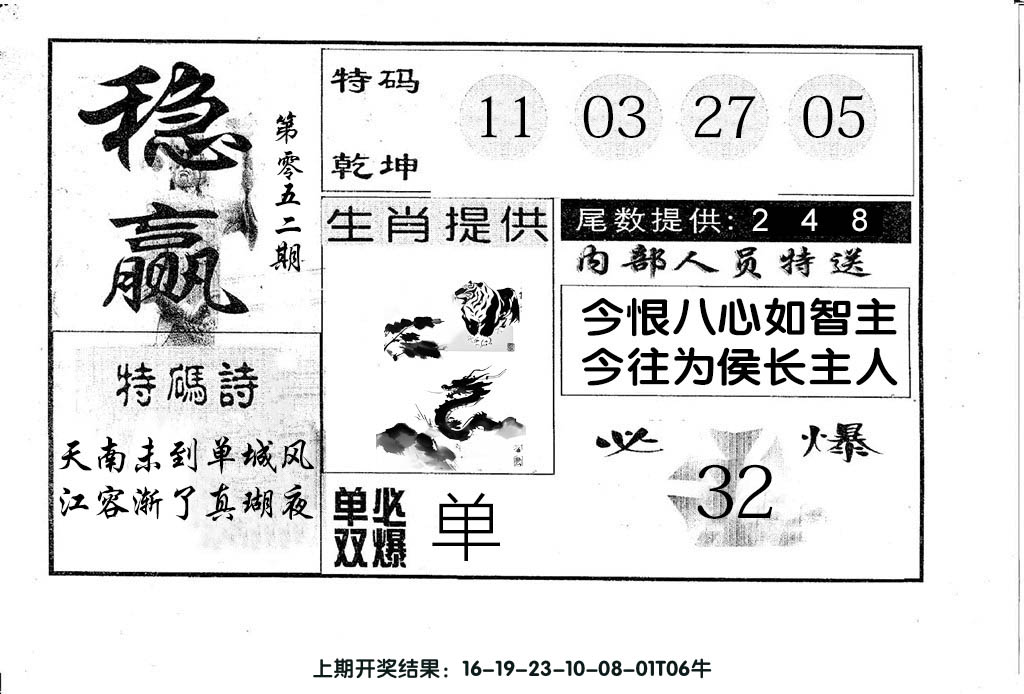 稳赢
第零五二期
特码
乾坤
11 03 27 05
生肖提供
尾数提供: 2 4 8
内部人员特送
今恨八心如智主
今往为侯长主人
特碼詩
天南未到单城风
江容渐了真瑚夜
必爆
32
单双
必爆
单
上期开奖结果：16-19-23-10-08-01T06牛